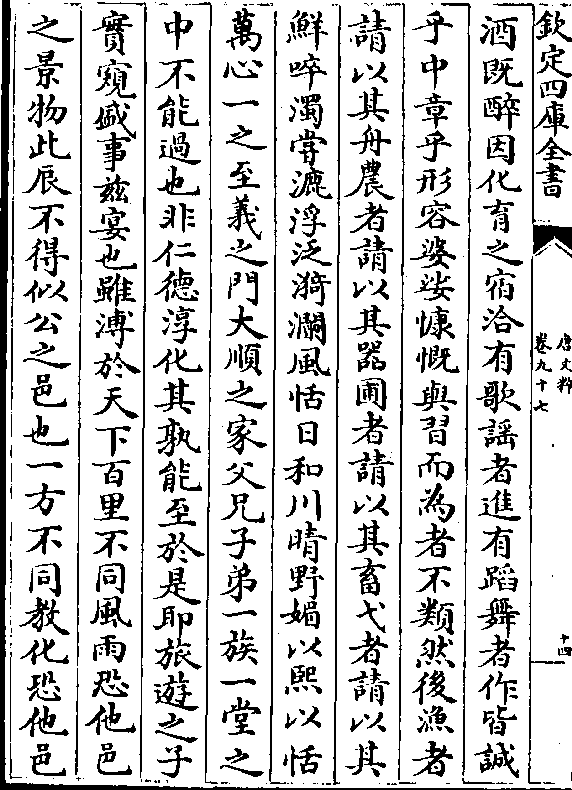 欽定四庫全書
唐文粹
卷九十七
十四
酒既醉因化育之宿洽有歌謡者進有蹈舞者作皆誠
乎中章乎形容婆娑慷慨與習而為者不類然後漁者
請以其舟農者請以其器圃者請以其畜弋者請以其
鮮啐濁嘗漉浮泛漪瀾風恬日和川晴野媚以熙以恬
萬心一之至義之門大順之家父兄子弟一族一堂之
中不能過也非仁德淳化其孰能至於是耶旅遊之子
實窺盛事兹宴也雖溥於天下百里不同風雨恐他邑
之景物此辰不得似公之邑也一方不同教化恐他邑